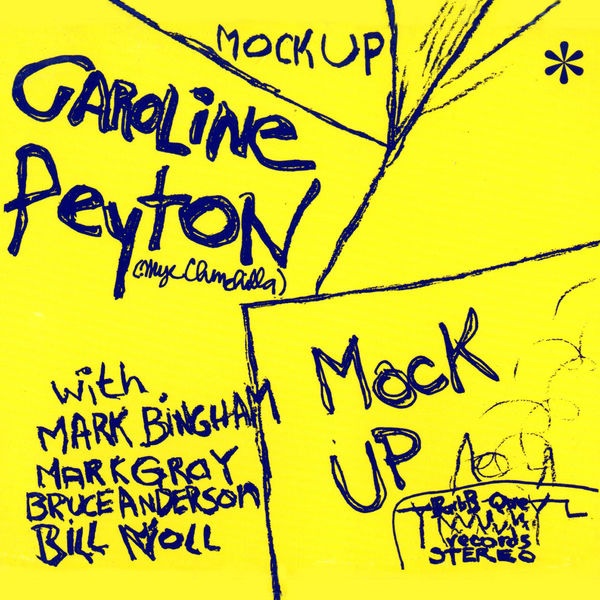 MOCK UP
*
CAROLINE
PEYTON
(Myc Chinchilla)
with
MARK BINGHAM
MARK GRAY
BRUCE ANDERSON
BILL NOLL
MOCK
UP
BarBB Que
records
STEREO